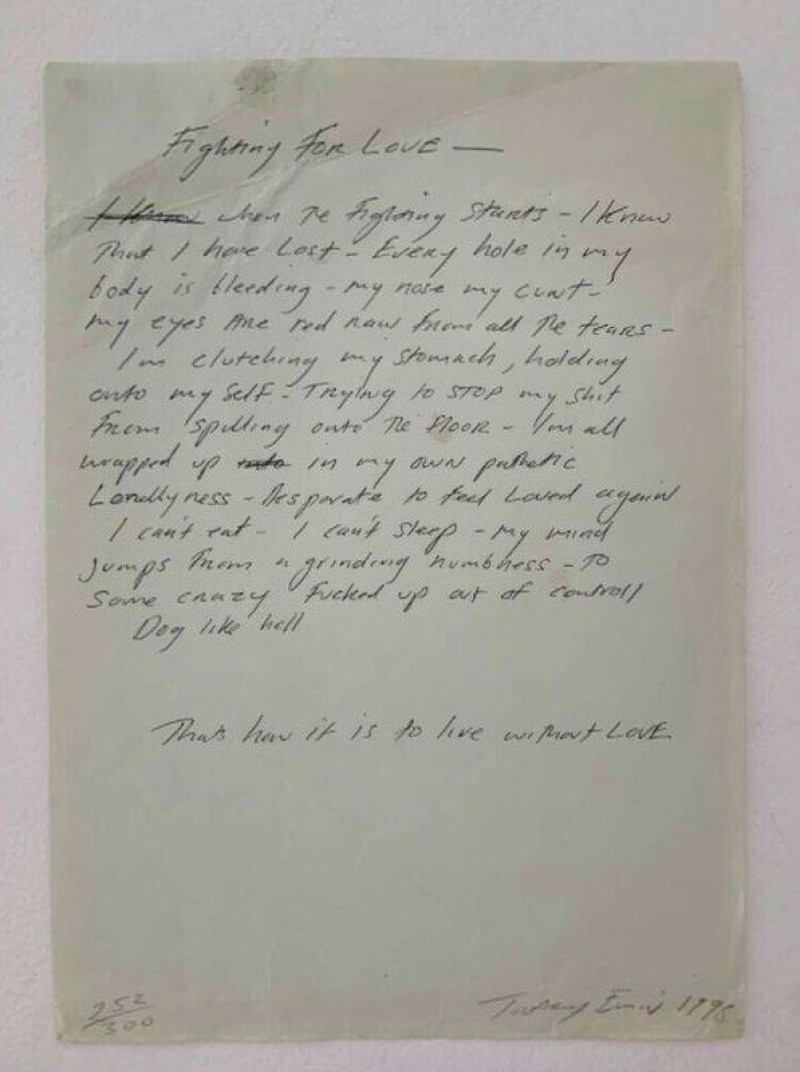 Fighting FOR LOVE —
I Know when The Fighting Starts - I Know
That I have Lost - Every hole in my
body is bleeding - my nose my cunt -
my eyes Are red raw from all The tears -
I'm clutching my stomach, holding
onto my self - Trying to STOP my shit
From spilling onto The FLOOR - I'm all
wrapped up into in my own pathetic
Lonellyness - Desperate to feel Loved again
I can't eat - I can't sleep - my mind
Jumps From a grinding numbness - TO
Some crazy Fucked up out of controll
Dog like hell
Thats how it is to live without LOVE
252/300
Tracey Emin 199